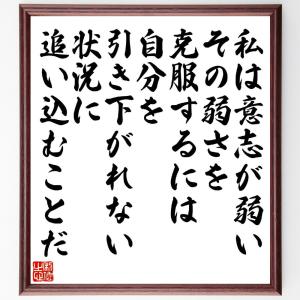 私は意志が弱い
その弱さを
克服するには
自分を
引き下がれない
状況に
追い込むことだ